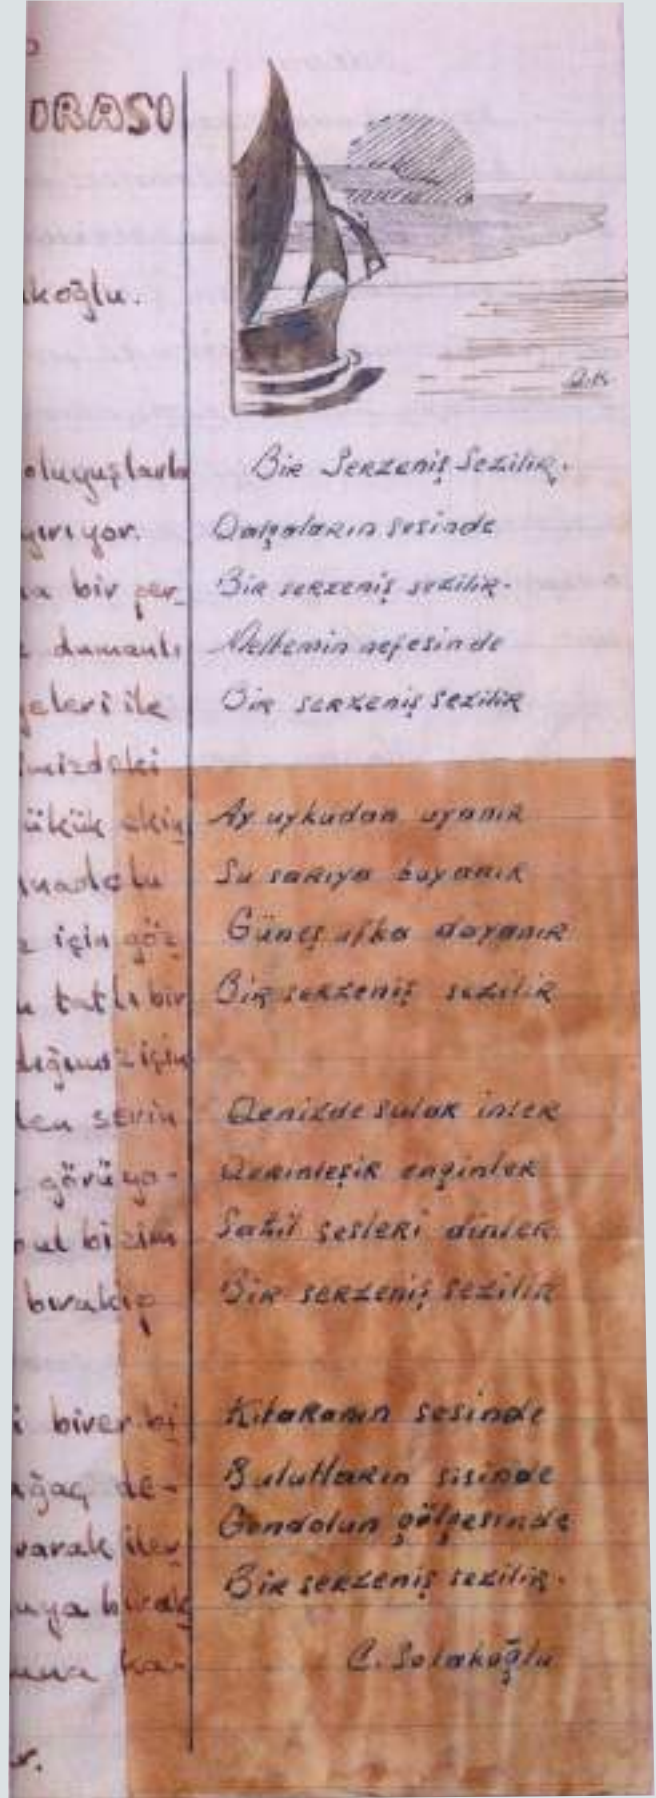 IRASI
koğlu.
oluyuşlarla
yırıyor.
bir per_
dumanlı
ile
imizdeki
ükük ekin
için göz
tatlı bir
için
serin
görüyo-
bizim
bırakıp
birer bi
ağaç de-
varak iler
bırak
ka-
D.K
Bir Serzeniş Sezilir.
Dalgaların sesinde
Bir serzeniş sezilir.
Meltemin nefesinde
Bir serzeniş sezilir
Ay uykudan uyanır
Su sarıya boyanır
Güneş ufka dayanır
Bir serzeniş sezilir
Denizde sular inler
Derinleşir enginler
Sahil sesleri dinler
Bir serzeniş sezilir
Kitaranın sesinde
Bulutların sisinde
Gondolun gölgesinde
Bir serzeniş sezilir.
C. Solakoğlu